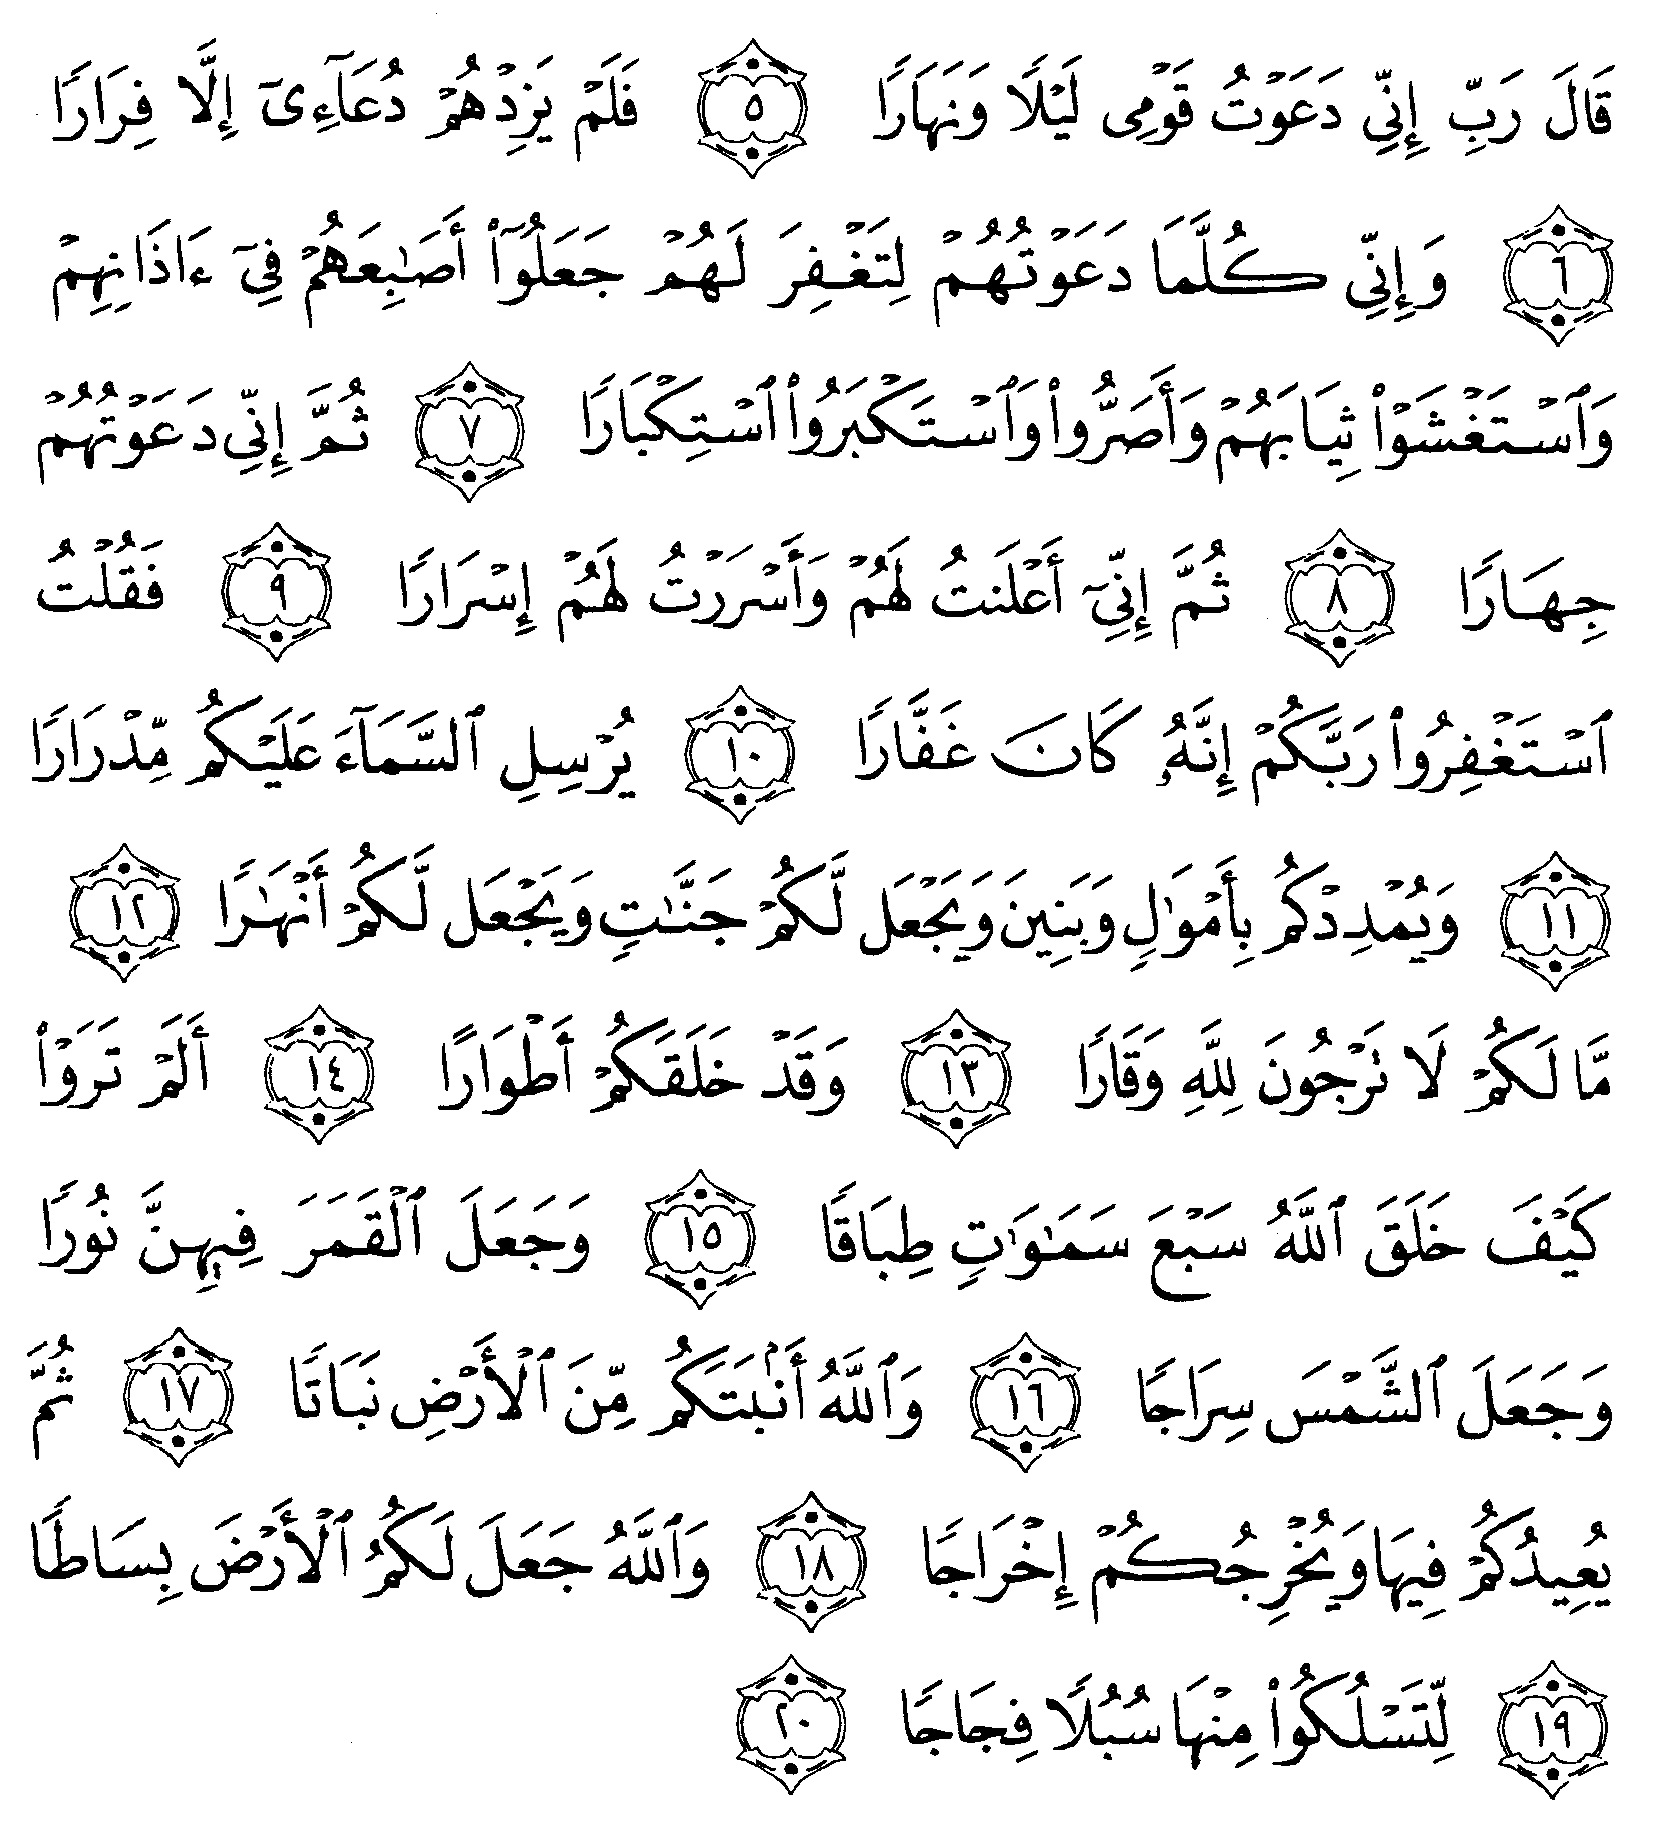 قَالَ رَبِّ إِنِّى دَعَوْتُ قَوْمِى لَيْلًا وَنَهَارًا ٥ فَلَمْ يَزِدْهُمْ دُعَآءِىٓ إِلَّا فِرَارًا
٦ وَإِنِّى كُلَّمَا دَعَوْتُهُمْ لِتَغْفِرَ لَهُمْ جَعَلُوٓا۟ أَصَٰبِعَهُمْ فِىٓ ءَاذَانِهِمْ
وَٱسْتَغْشَوْا۟ ثِيَابَهُمْ وَأَصَرُّوا۟ وَٱسْتَكْبَرُوا۟ ٱسْتِكْبَارًا ٧ ثُمَّ إِنِّى دَعَوْتُهُمْ
جِهَارًا ٨ ثُمَّ إِنِّىٓ أَعْلَنتُ لَهُمْ وَأَسْرَرْتُ لَهُمْ إِسْرَارًا ٩ فَقُلْتُ
ٱسْتَغْفِرُوا۟ رَبَّكُمْ إِنَّهُۥ كَانَ غَفَّارًا ١٠ يُرْسِلِ ٱلسَّمَآءَ عَلَيْكُم مِّدْرَارًا
١١ وَيُمْدِدْكُم بِأَمْوَٰلٍ وَبَنِينَ وَيَجْعَل لَّكُمْ جَنَّٰتٍ وَيَجْعَل لَّكُمْ أَنْهَٰرًا ١٢
مَّا لَكُمْ لَا تَرْجُونَ لِلَّهِ وَقَارًا ١٣ وَقَدْ خَلَقَكُمْ أَطْوَارًا ١٤ أَلَمْ تَرَوْا۟
كَيْفَ خَلَقَ ٱللَّهُ سَبْعَ سَمَٰوَٰتٍ طِبَاقًا ١٥ وَجَعَلَ ٱلْقَمَرَ فِيهِنَّ نُورًا
وَجَعَلَ ٱلشَّمْسَ سِرَاجًا ١٦ وَٱللَّهُ أَنۢبَتَكُم مِّنَ ٱلْأَرْضِ نَبَاتًا ١٧ ثُمَّ
يُعِيدُكُمْ فِيهَا وَيُخْرِجُكُمْ إِخْرَاجًا ١٨ وَٱللَّهُ جَعَلَ لَكُمُ ٱلْأَرْضَ بِسَاطًا
١٩ لِّتَسْلُكُوا۟ مِنْهَا سُبُلًا فِجَاجًا ٢٠